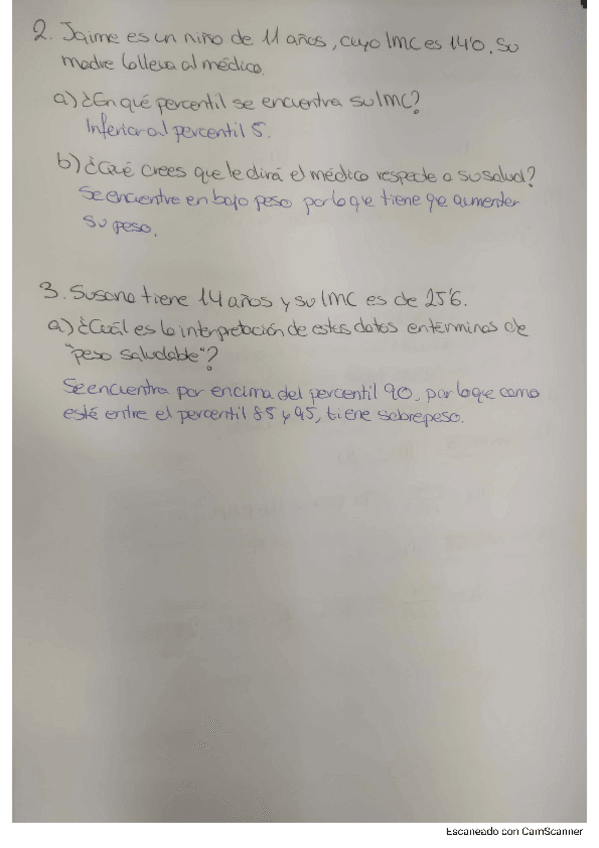 2. Jaime es un niño de 11 años, cuyo IMC es 14'0. Su
madre lo lleva al médico.
a) ¿En qué percentil se encuentra su IMC?
Inferior al percentil 5.
b) ¿Qué crees que le dirá el médico respecto a su salud?
Se encuentre en bajo peso por lo que tiene que aumentar
su peso.
3. Susana tiene 14 años y su IMC es de 25'6.
a) ¿Cuál es la interpretación de estos datos en términos de
"peso saludable"?
Se encuentra por encima del percentil 90, por lo que como
esté entre el percentil 85 y 95, tiene sobrepeso.
Escaneado con CamScanner